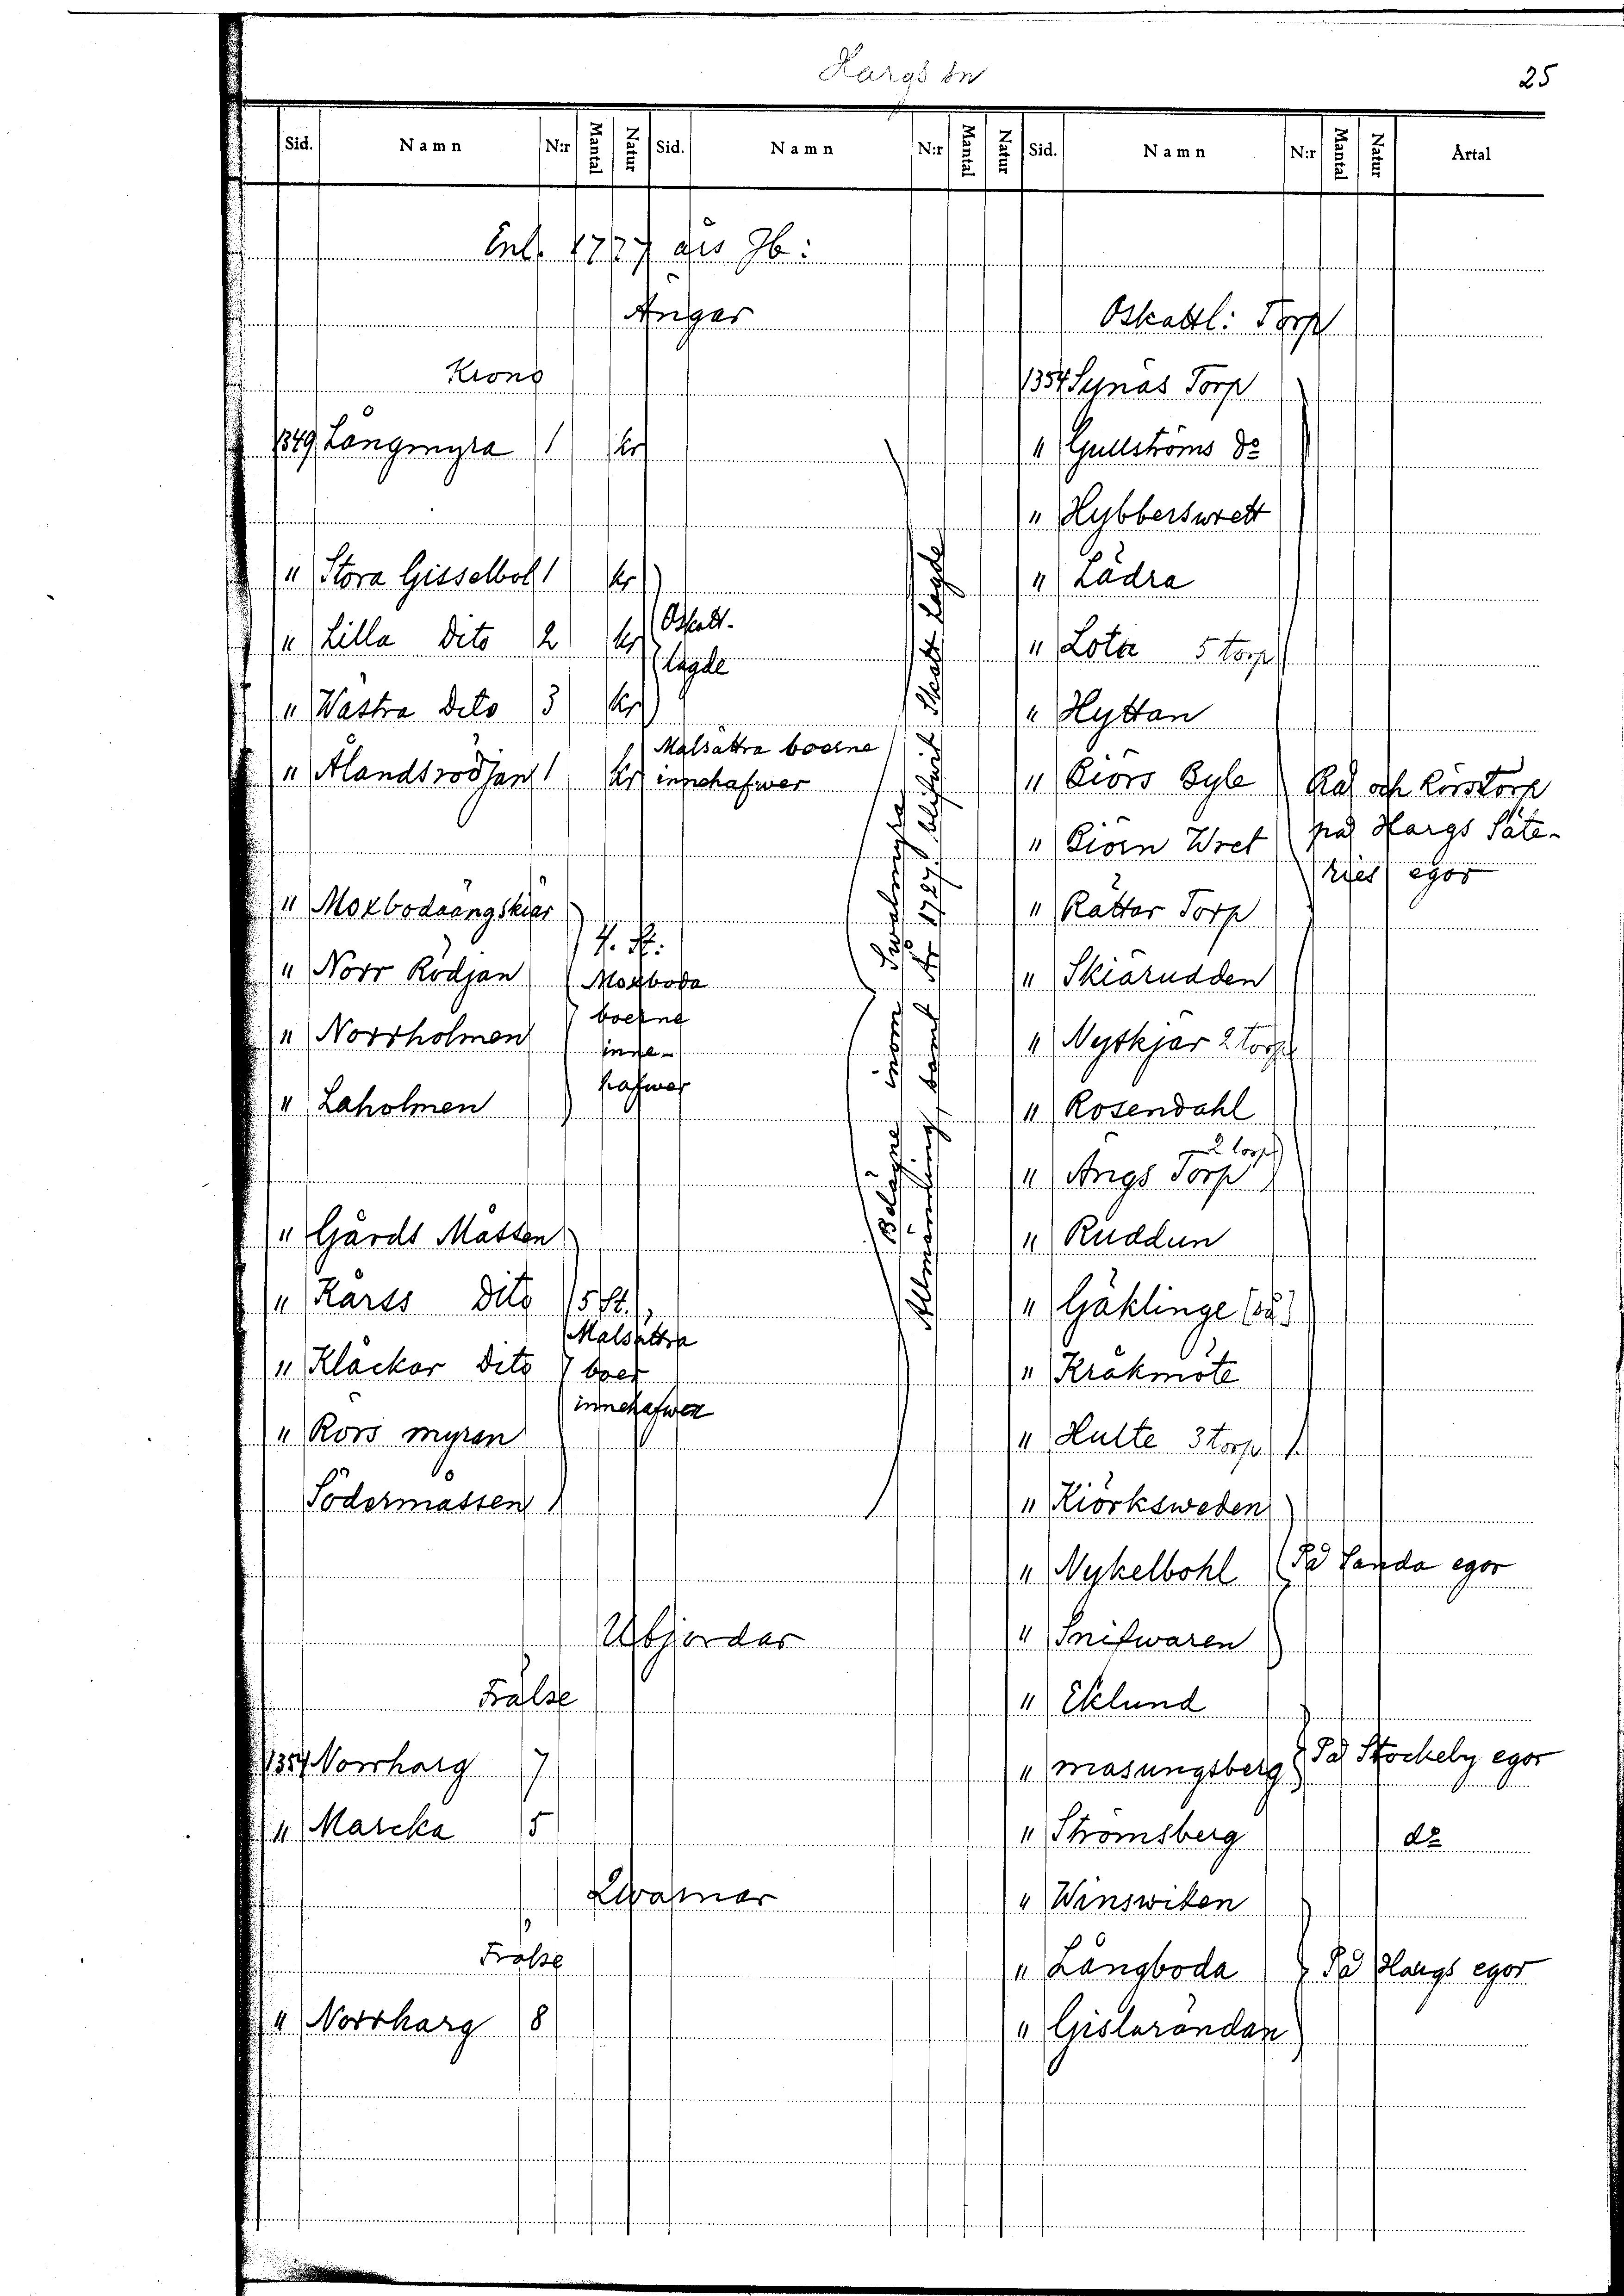 Hargs sn
25
Sid. Namn N:r Mantal Natur Sid. Namn N:r Mantal Natur Sid. Namn N:r Mantal Natur Årtal
Enl. 1727 års Jb:
Ängar
Krono
1349 Långmyra 1 kr
" Stora Gisselbol 1 kr
" Lilla Dito 2 kr
" Wästra Dito 3 kr
Oskatt-
lagde
" Ålandsrödjan 1 kr
Malsättra boerne
innehafwer
" Moxbodaängskiär
" Norr Rödjan
" Norrholmen
" Laholmen
4. St.
Moxboda
boerne
inne-
hafwer
" Gårds Måssen
" Kärss Dito
" Klåckar Dito
" Rörs myran
Södermåssen
5 St.
Malsättra
boer
innehafwer
Belägne inom Swalmyra
Allmänning, samt År 1727 blifwit Skatt Lagde
Utjordar
Frälse
1354 Norrharg 7
" Marcka 5
Qwarnar
Frälse
" Norrharg 8
Oskattl: Torp
1354 Synäs Torp
" Gullströms do
" Hybberswrett
" Lädra
" Lota 5 torp
" Hyttan
" Biörs Byle
" Biörn Wret
" Rättar Torp
" Skiärudden
" Nyskjär 2 torp
" Rosendahl
" Ängs Torp 2 torp
" Ruddun
" Gäklinge
" Kråkmöte
" Hulte 3 torp
Rå och Rörstorp
på Hargs Säte-
ries egor
" Kiörksweden
" Nykelbohl
" Snifwaren
På Sanda egor
" Eklund
" masungsberg
På Stockeby egor
" Strömsberg do
" Winswiken
" Långboda
" Gislaröndan
På Hargs egor